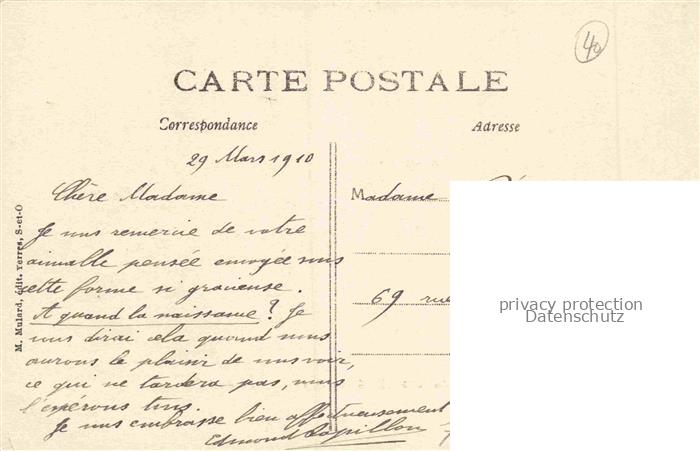 40
CARTE POSTALE
Correspondance
Adresse
29 Mars 1910
Chère Madame
Je vous remercie de votre
aimable pensée envoyée sous
cette forme si gracieuse.
A quand la naissance ? Je
vous dirai cela quand nous
aurons le plaisir de vous voir,
ce qui ne tardera pas, nous
l'espérons tous.
Je vous embrasse bien affectueusement
Edmond Papillon
Madame
69 rue
privacy protection
Datenschutz
M. Mulard, édit. Yerres, S-et-O